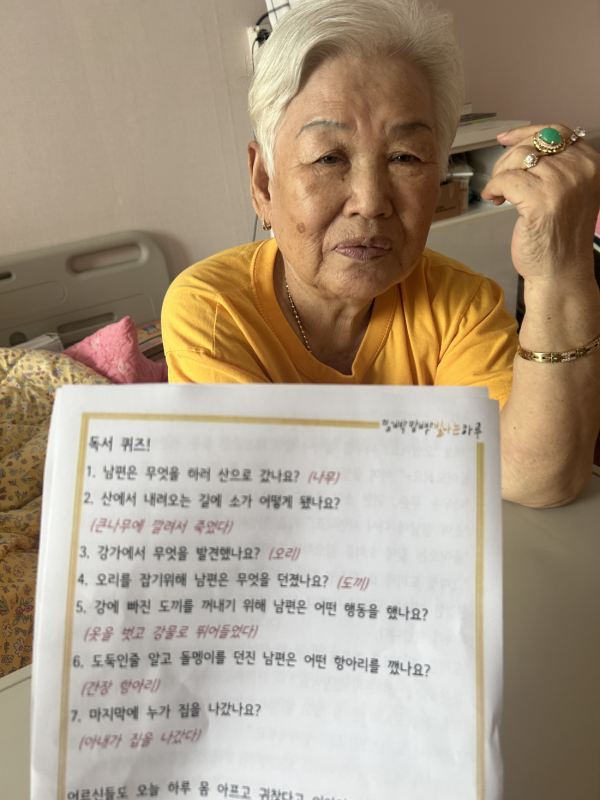 반짝반짝 빛나는 하루
독서 퀴즈!
1. 남편은 무엇을 하러 산으로 갔나요? (나무)
2. 산에서 내려오는 길에 소가 어떻게 됐나요?
(큰나무에 깔려서 죽었다)
3. 강가에서 무엇을 발견했나요? (오리)
4. 오리를 잡기위해 남편은 무엇을 던졌나요? (도끼)
5. 강에 빠진 도끼를 꺼내기 위해 남편은 어떤 행동을 했나요?
(옷을 벗고 강물로 뛰어들었다)
6. 도둑인줄 알고 돌멩이를 던진 남편은 어떤 항아리를 깼나요?
(간장 항아리)
7. 마지막에 누가 집을 나갔나요?
(아내가 집을 나갔다)
어르신들도 오늘 하루 몸 아프고 귀찮다고